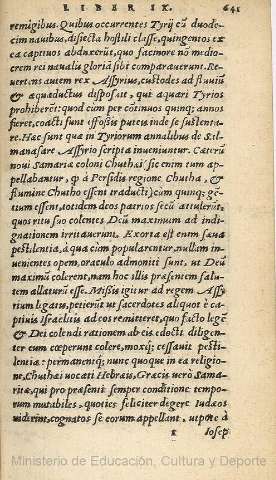 LIBER IX. 641
remigibus. Quibus occurrentes Tyrij cũ duode-
cim nauibus, disiecta hostili classe, quingentos ex
ea captiuos abduxerũt, quo facinore nõ medio-
crem rei naualis gloriã sibi comparauerunt. Re-
uertens autem rex Assyrius, custodes ad fluuiũ
& aquæductus disposuit, qui aquari Tyrios
prohiberẽt: quod cùm per cõtinuos quinq; annos
fieret, coacti sunt effossis puteis inde se sustenta-
re. Hæc sunt quæ in Tyriorum annalibus de Sal-
manasare Assyrio scripta inueniuntur. Cæterũ
noui Samariæ coloni Chuthæi sic enim tum ap-
pellabantur, ꝙ à Persidis regione Chutha, &
flumine Chutho essent traducti) cùm quinq; gẽ-
tium essent, totidem deos patrios secũ attulerũt:
quos ritu suo colentes Deũ maximum ad indi-
gnationem irritauerunt. Exorta est enim sæua
pestilentia, à qua cùm popularentur, nullam in-
uenientes opem, oraculo admoniti sunt, ut Deũ
maximũ colerent, nam hoc illis præsentem salu-
tem allaturũ esse. Missis igitur ad regem Assy-
rium legatis, petierũt ut sacerdotes aliquot è ca-
ptiuis Israelitis ad eos remitteret, quo facto legẽ
& Dei colendi rationem ab eis edocti diligen-
ter eum cœperunt colere, moxq; cessauit pesti-
lentia: permanentq; nunc quoque in ea religio-
ne, Chuthæi uocati Hebræis, Græcis verò Sama-
ritæ, qui pro præsenti semper conditione tempo-
rum mutabiles, quoties feliciter degere Iudæos
uiderint, cognatos se eorum appellant, utpote à
s Iosep
Ministerio de Educación, Cultura y Deporte